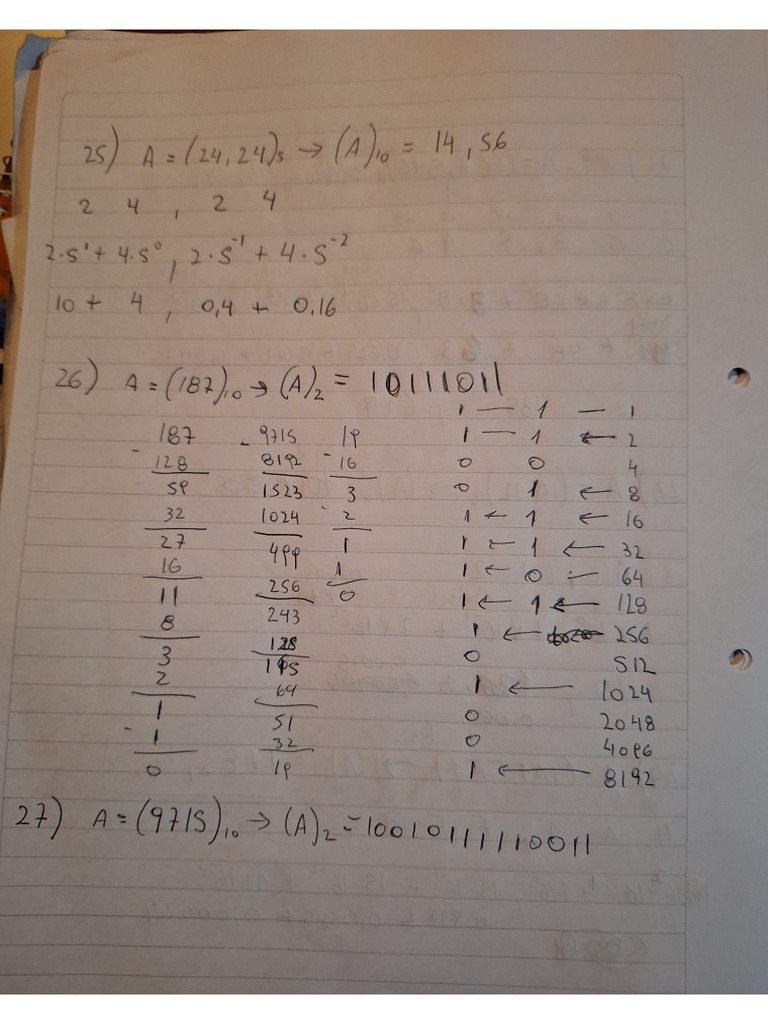 25) A = (24,24)₅ → (A)₁₀ = 14,56
2 4 , 2 4
2·5¹ + 4·5⁰ , 2·5⁻¹ + 4·5⁻²
10 + 4 , 0,4 + 0,16
26) A = (187)₁₀ → (A)₂ = 10111011
1 — 1 — 1
187 - 9715 19 1 — 1 ← 2
- 128 8192 - 16 0 0 4
59 1523 3 0 1 ← 8
32 1024 - 2 1 ← 1 ← 16
27 499 1 1 ← 1 ← 32
16 256 1 1 ← 0 ← 64
11 243 0 1 ← 1 ← 128
8 128 1 ← 256
3 115 0 512
2 64 1 ← 1024
1 51 0 2048
- 1 32 0 4096
0 19 1 ← 8192
27) A = (9715)₁₀ → (A)₂ = 10010111110011